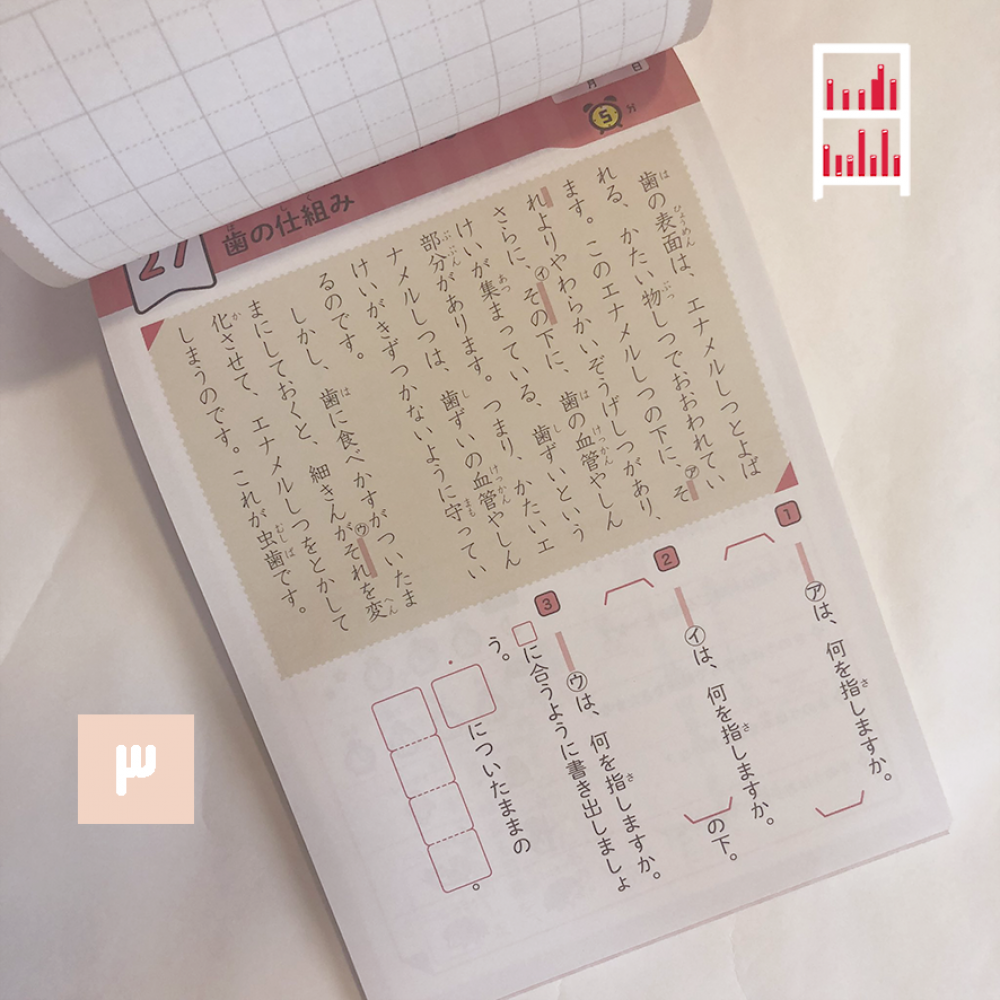 月 日
5分
27 歯の仕組み
歯の表面は、エナメルしつとよば
れる、かたい物しつでおおわれてい
ます。このエナメルしつの下に、㋐そ
れよりやわらかいぞうげしつがあり、
さらに、㋑その下に、歯の血管やしん
けいが集まっている、歯ずいという
部分があります。つまり、かたいエ
ナメルしつは、歯ずいの血管やしん
けいがきずつかないように守ってい
るのです。
しかし、歯に食べかすがついたま
まにしておくと、細きんが㋒それを変
化させて、エナメルしつをとかして
しまうのです。これが虫歯です。
1 ㋐は、何を指しますか。
2 ㋑は、何を指しますか。
の下。
3 ㋒は、何を指しますか。
□に合うように書き出しましょ
う。
についたままの
。
٣